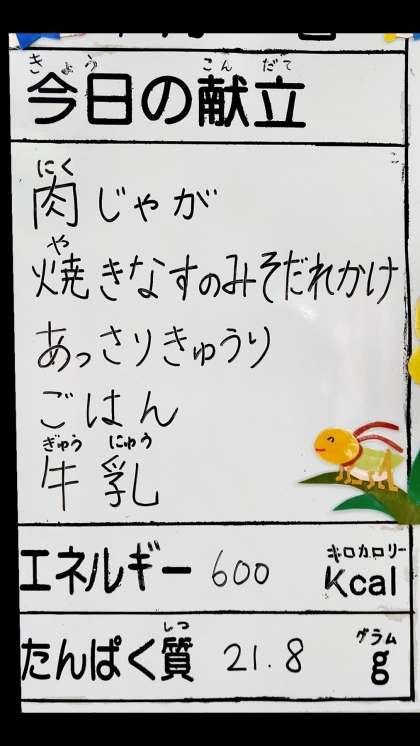 きょう こんだて
今日の献立
にく
肉じゃが
や
焼きなすのみそだれかけ
あっさりきゅうり
ごはん
ぎゅう にゅう
牛乳
キロカロリー
エネルギー 600 kcal
しつ グラム
たんぱく質 21.8 g